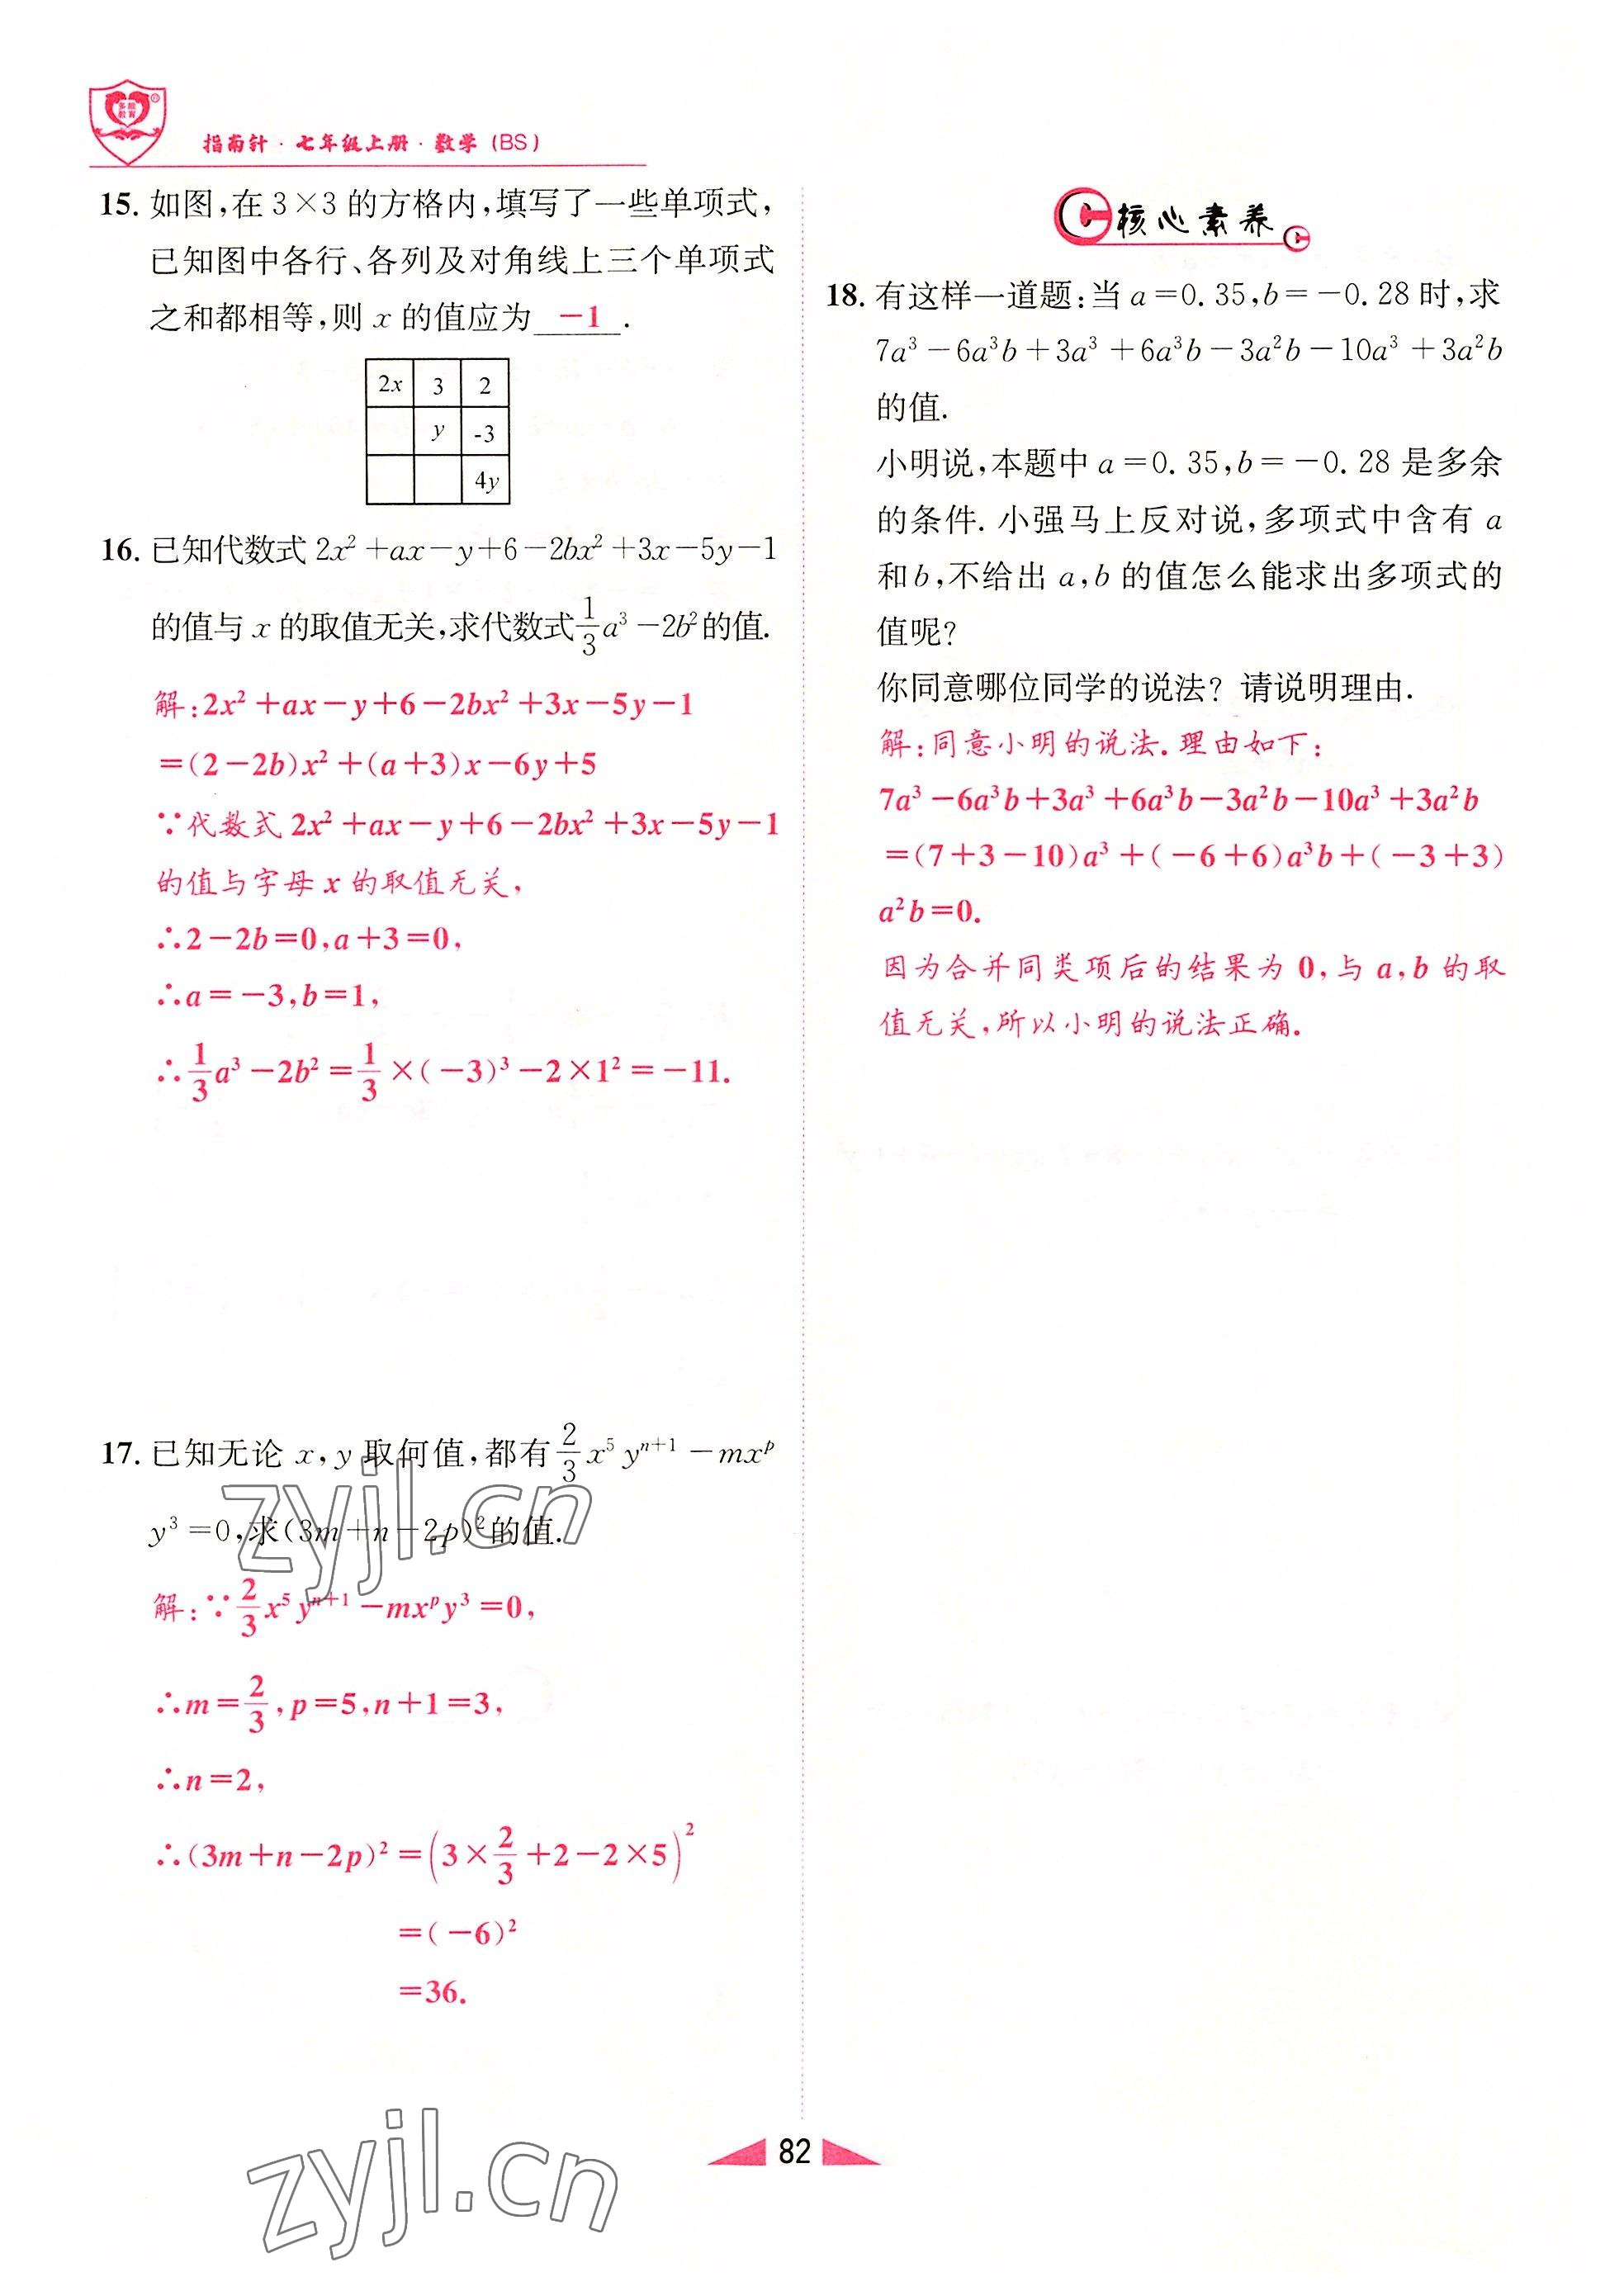 多能
教育
指南针·七年级上册·数学(BS)
15. 如图,在3×3的方格内,填写了一些单项式,
已知图中各行、各列及对角线上三个单项式
之和都相等,则 x 的值应为 -1 .
2x 3 2
y -3
4y
16. 已知代数式 2x²+ax-y+6-2bx²+3x-5y-1
的值与 x 的取值无关,求代数式 1/3 a³-2b² 的值.
解:2x²+ax-y+6-2bx²+3x-5y-1
=(2-2b)x²+(a+3)x-6y+5
∵代数式 2x²+ax-y+6-2bx²+3x-5y-1
的值与字母 x 的取值无关,
∴2-2b=0,a+3=0,
∴a=-3,b=1,
∴1/3 a³-2b²=1/3×(-3)³-2×1²=-11.
17. 已知无论 x,y 取何值,都有 2/3 x⁵yⁿ⁺¹-mxᵖ
y³=0,求(3m+n-2p)²的值.
解:∵2/3 x⁵yⁿ⁺¹-mxᵖy³=0,
∴m=2/3,p=5,n+1=3,
∴n=2,
∴(3m+n-2p)²=(3×2/3+2-2×5)²
=(-6)²
=36.
核心素养
18. 有这样一道题:当 a=0.35,b=-0.28 时,求
7a³-6a³b+3a³+6a³b-3a²b-10a³+3a²b
的值.
小明说,本题中 a=0.35,b=-0.28 是多余
的条件.小强马上反对说,多项式中含有 a
和b,不给出 a,b 的值怎么能求出多项式的
值呢?
你同意哪位同学的说法? 请说明理由.
解:同意小明的说法.理由如下:
7a³-6a³b+3a³+6a³b-3a²b-10a³+3a²b
=(7+3-10)a³+(-6+6)a³b+(-3+3)
a²b=0.
因为合并同类项后的结果为 0,与 a,b 的取
值无关,所以小明的说法正确.
zyjl.cn
zyjl.cn
82